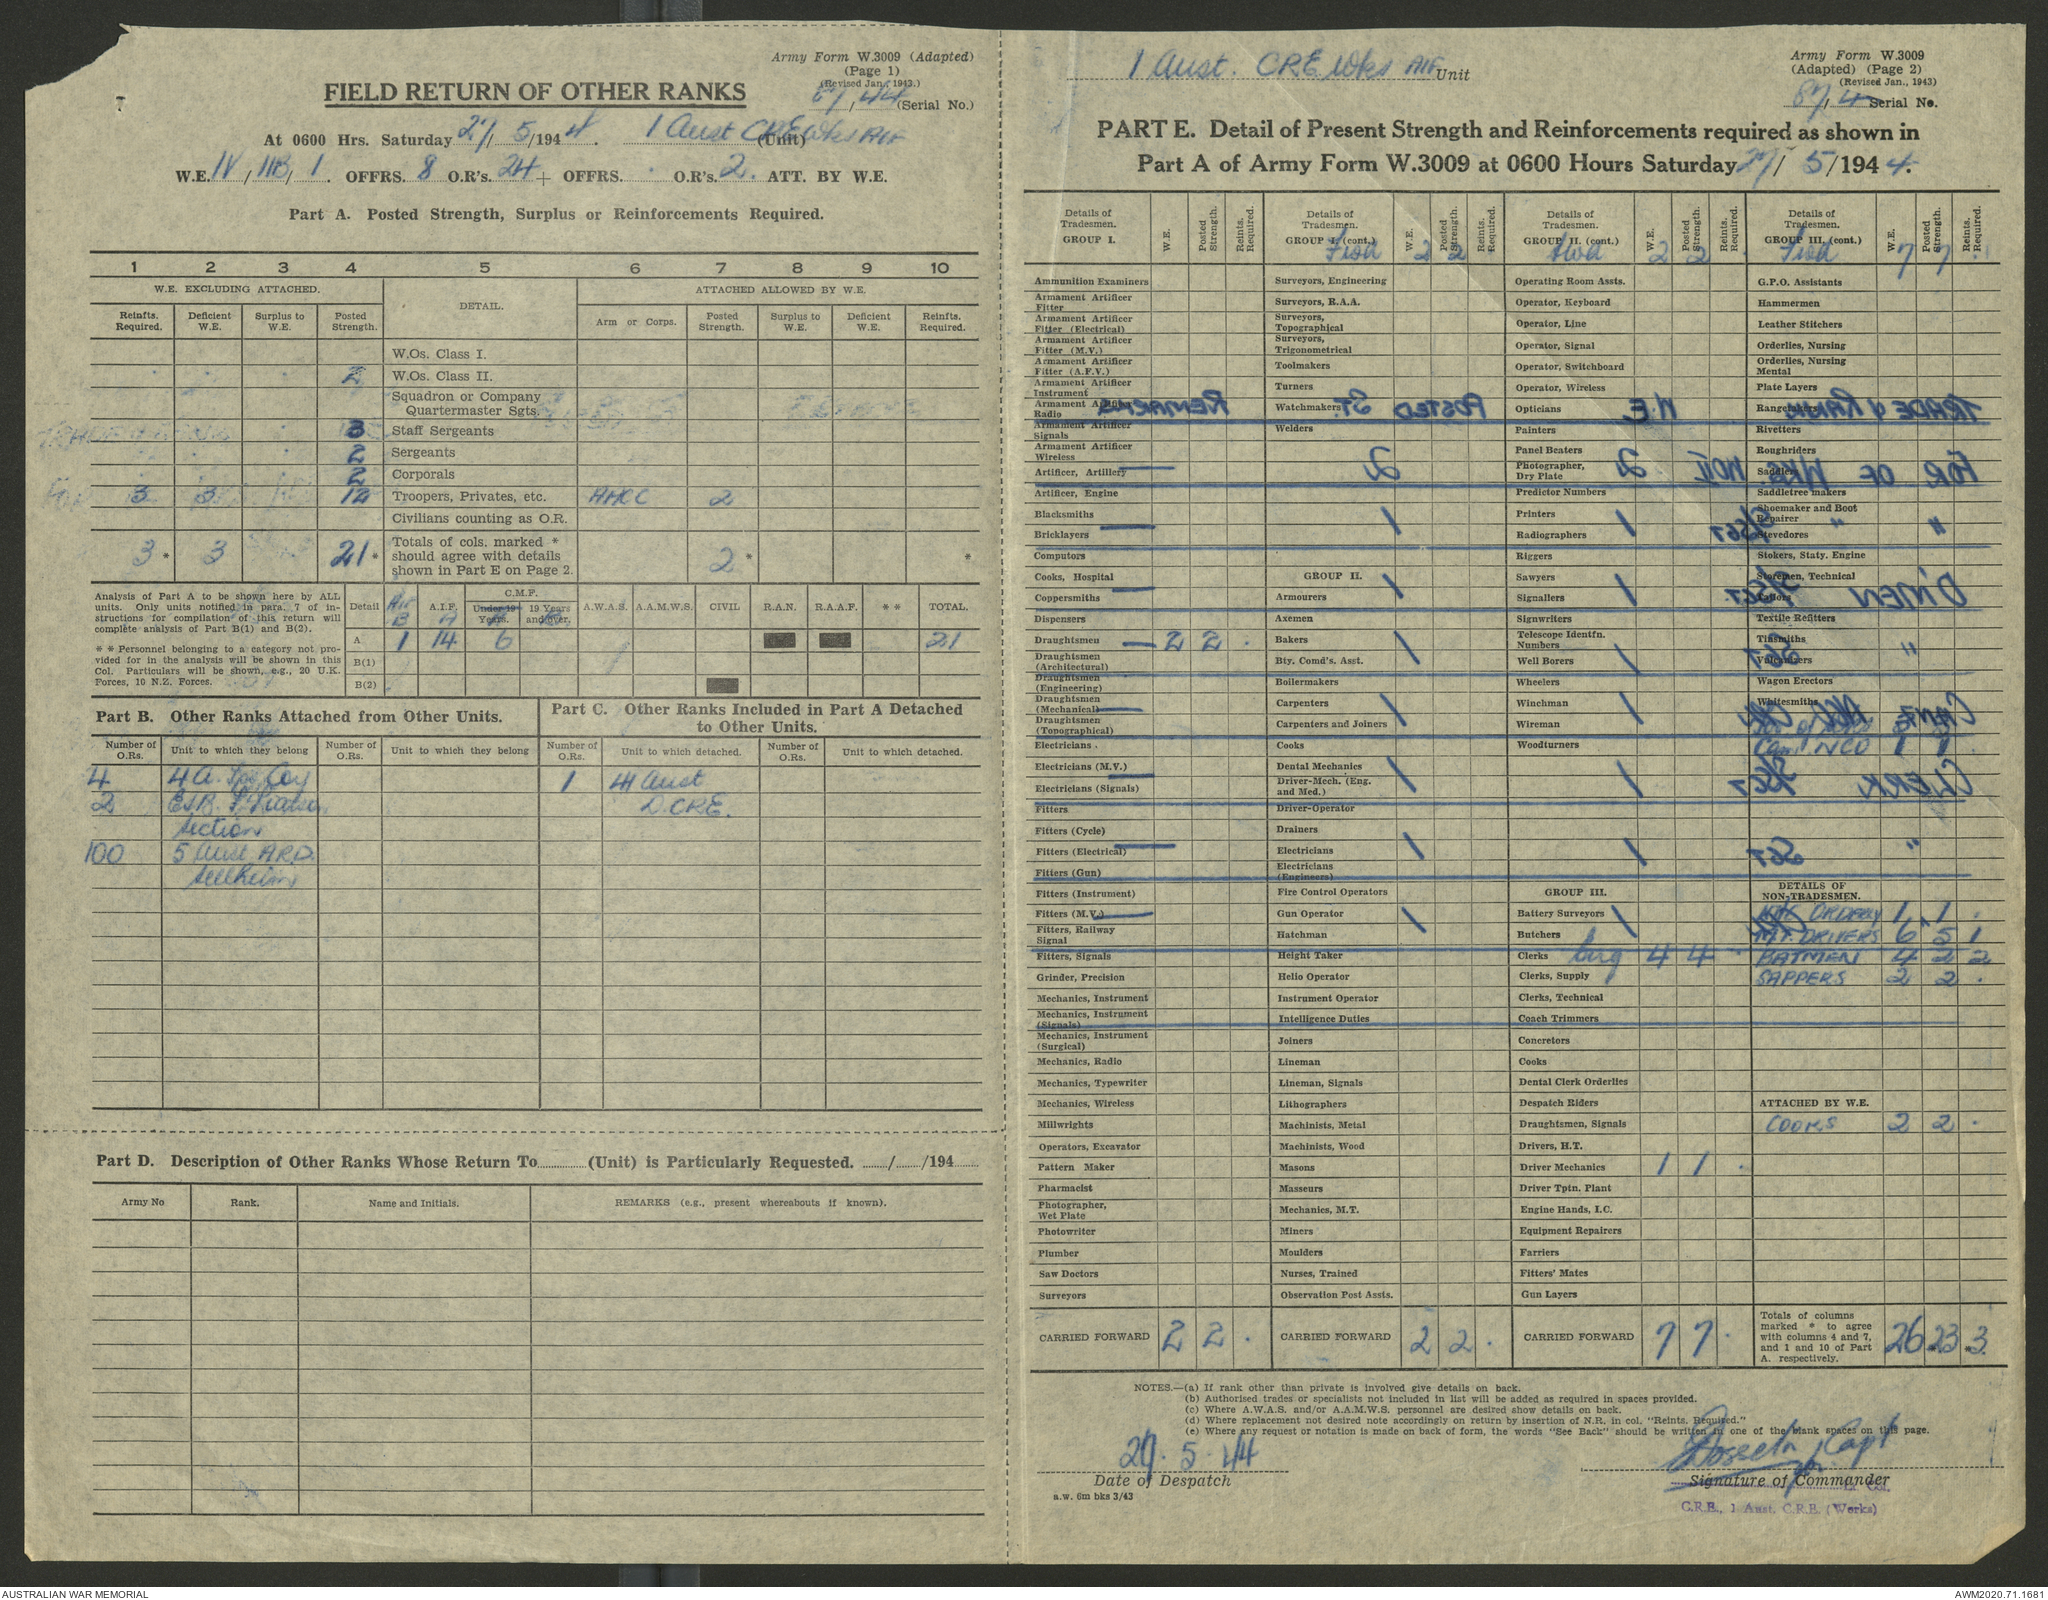 Army Form W.3009 (Adapted)
(Page 1)
(Revised Jan., 1943.)
FIELD RETURN OF OTHER RANKS
87/44 (Serial No.)
At 0600 Hrs. Saturday 27/5/1944. 1 Aust CRE Wks AIF (Unit)
W.E. IV/11B/1. OFFRS. 8 O.R's. 24 + OFFRS. . O.R's. 2. ATT. BY W.E.
Part A. Posted Strength, Surplus or Reinforcements Required.
1 2 3 4 5 6 7 8 9 10
W.E. EXCLUDING ATTACHED. DETAIL. ATTACHED ALLOWED BY W.E.
Reinfts. Required. Deficient W.E. Surplus to W.E. Posted Strength. Arm or Corps. Posted Strength. Surplus to W.E. Deficient W.E. Reinfts. Required.
W.Os. Class I.
2 W.Os. Class II.
Squadron or Company
Quartermaster Sgts.
3 Staff Sergeants
2 Sergeants
2 Corporals
3 3 12 Troopers, Privates, etc. AACC 2
Civilians counting as O.R.
3* 3 21* Totals of cols. marked * should agree with details shown in Part E on Page 2. 2* *
Analysis of Part A to be shown here by ALL
units. Only units notified in para. 7 of in-
structions for compilation of this return will
complete analysis of Part B(1) and B(2).
* * Personnel belonging to a category not pro-
vided for in the analysis will be shown in this
Col. Particulars will be shown, e.g., 20 U.K.
Forces, 10 N.Z. Forces.
Detail A.I.F. C.M.F. Under 19 Years. 19 Years and over. A.W.A.S. A.A.M.W.S. CIVIL R.A.N. R.A.A.F. * * TOTAL.
A 1 14 6 21
B(1)
B(2)
Part B. Other Ranks Attached from Other Units.
Number of O.Rs. Unit to which they belong Number of O.Rs. Unit to which they belong
4 4 A. Coy
2
Section
100 5 Aust A.R.D.
Sellheim
Part C. Other Ranks Included in Part A Detached
to Other Units.
Number of O.Rs. Unit to which detached. Number of O.Rs. Unit to which detached.
1 41 Aust
D.CRE.
Part D. Description of Other Ranks Whose Return To (Unit) is Particularly Requested. / /194
Army No Rank. Name and Initials. REMARKS (e.g., present whereabouts if known).
1 Aust. CRE Wks AIF Unit
Army Form W.3009
(Adapted) (Page 2)
(Revised Jan., 1943)
87/4 Serial No.
PART E. Detail of Present Strength and Reinforcements required as shown in
Part A of Army Form W.3009 at 0600 Hours Saturday 27/5/1944.
Details of Tradesmen. GROUP I. W.E. Posted Strength. Reints. Required.
Ammunition Examiners
Armament Artificer Fitter
Armament Artificer Fitter (Electrical)
Armament Artificer Fitter (M.V.)
Armament Artificer Fitter (A.F.V.)
Armament Artificer Instrument
Armament Artificer Radio
Armament Artificer Signals
Armament Artificer Wireless
Artificer, Artillery
Artificer, Engine
Blacksmiths
Bricklayers
Computors
Cooks, Hospital
Coppersmiths
Dispensers
Draughtsmen 2 2 .
Draughtsmen (Architectural)
Draughtsmen (Engineering)
Draughtsmen (Mechanical)
Draughtsmen (Topographical)
Electricians
Electricians (M.V.)
Electricians (Signals)
Fitters
Fitters (Cycle)
Fitters (Electrical)
Fitters (Gun)
Fitters (Instrument)
Fitters (M.V.)
Fitters, Railway Signal
Fitters, Signals
Grinder, Precision
Mechanics, Instrument
Mechanics, Instrument (Signals)
Mechanics, Instrument (Surgical)
Mechanics, Radio
Mechanics, Typewriter
Mechanics, Wireless
Millwrights
Operators, Excavator
Pattern Maker
Pharmacist
Photographer, Wet Plate
Photowriter
Plumber
Saw Doctors
Surveyors
CARRIED FORWARD 2 2 .
Details of Tradesmen. GROUP I. (cont.) W.E. Posted Strength. Reints. Required.
Fwd 2 2
Surveyors, Engineering
Surveyors, R.A.A.
Surveyors, Topographical
Surveyors, Trigonometrical
Toolmakers
Turners
Watchmakers
Welders
GROUP II.
Armourers
Axemen
Bakers
Bty. Comd's. Asst.
Boilermakers
Carpenters
Carpenters and Joiners
Cooks
Dental Mechanics
Driver-Mech. (Eng. and Med.)
Driver-Operator
Drainers
Electricians
Electricians (Engineers)
Fire Control Operators
Gun Operator
Hatchman
Height Taker
Helio Operator
Instrument Operator
Intelligence Duties
Joiners
Lineman
Lineman, Signals
Lithographers
Machinists, Metal
Machinists, Wood
Masons
Masseurs
Mechanics, M.T.
Miners
Moulders
Nurses, Trained
Observation Post Assts.
CARRIED FORWARD 2 2 .
Details of Tradesmen. GROUP II. (cont.) W.E. Posted Strength. Reints. Required.
Fwd 2 2 .
Operating Room Assts.
Operator, Keyboard
Operator, Line
Operator, Signal
Operator, Switchboard
Operator, Wireless
Opticians
Painters
Panel Beaters
Photographer, Dry Plate
Predictor Numbers
Printers
Radiographers
Riggers
Sawyers
Signallers
Signwriters
Telescope Identfn. Numbers
Well Borers
Wheelers
Winchman
Wireman
Woodturners
GROUP III.
Battery Surveyors
Butchers
Clerks 4 4 .
Clerks, Supply
Clerks, Technical
Coach Trimmers
Concretors
Cooks
Dental Clerk Orderlies
Despatch Riders
Draughtsmen, Signals
Drivers, H.T.
Driver Mechanics 1 1 .
Driver Tptn. Plant
Engine Hands, I.C.
Equipment Repairers
Farriers
Fitters' Mates
Gun Layers
CARRIED FORWARD 7 7 .
Details of Tradesmen. GROUP III. (cont.) W.E. Posted Strength. Reints. Required.
Fwd 7 7 .
G.P.O. Assistants
Hammermen
Leather Stitchers
Orderlies, Nursing
Orderlies, Nursing Mental
Plate Layers
Rangetakers
Rivetters
Roughriders
Saddlers
Saddletree makers
Shoemaker and Boot Repairer
Stevedores
Stokers, Staty. Engine
Storemen, Technical
Tailors
Textile Refitters
Tinsmiths
Vulcanizers
Wagon Erectors
Whitesmiths
Cam. NCO 1 1
DETAILS OF NON-TRADESMEN.
ORDERLY 1 1 .
M.T. DRIVERS 6 5 1
BATMEN 4 2 2
SAPPERS 2 2 .
ATTACHED BY W.E.
COOKS 2 2 .
Totals of columns marked * to agree with columns 4 and 7, and 1 and 10 of Part A. respectively. 26 23 3
TRADE & RANK W.E. POSTED ST. REMARKS
FOR OF WKS. WOII 2 2 —
" " S/SGT 1 1 —
D'MEN S/SGT 1 1 —
" SGT 1 1
CLERK S/SGT 1 1 —
" SGT 1 1 —
NOTES.—(a) If rank other than private is involved give details on back.
(b) Authorised trades or specialists not included in list will be added as required in spaces provided.
(c) Where A.W.A.S. and/or A.A.M.W.S. personnel are desired show details on back.
(d) Where replacement not desired note accordingly on return by insertion of N.R. in col. "Reints. Required."
(e) Where any request or notation is made on back of form, the words "See Back" should be written in one of the blank spaces on this page.
29.5.44
Date of Despatch
Capt
Signature of Commander
a.w. 6m bks 3/43
C.R.E., 1 Aust. C.R.E. (Works)
AUSTRALIAN WAR MEMORIAL
AWM2020.71.1681